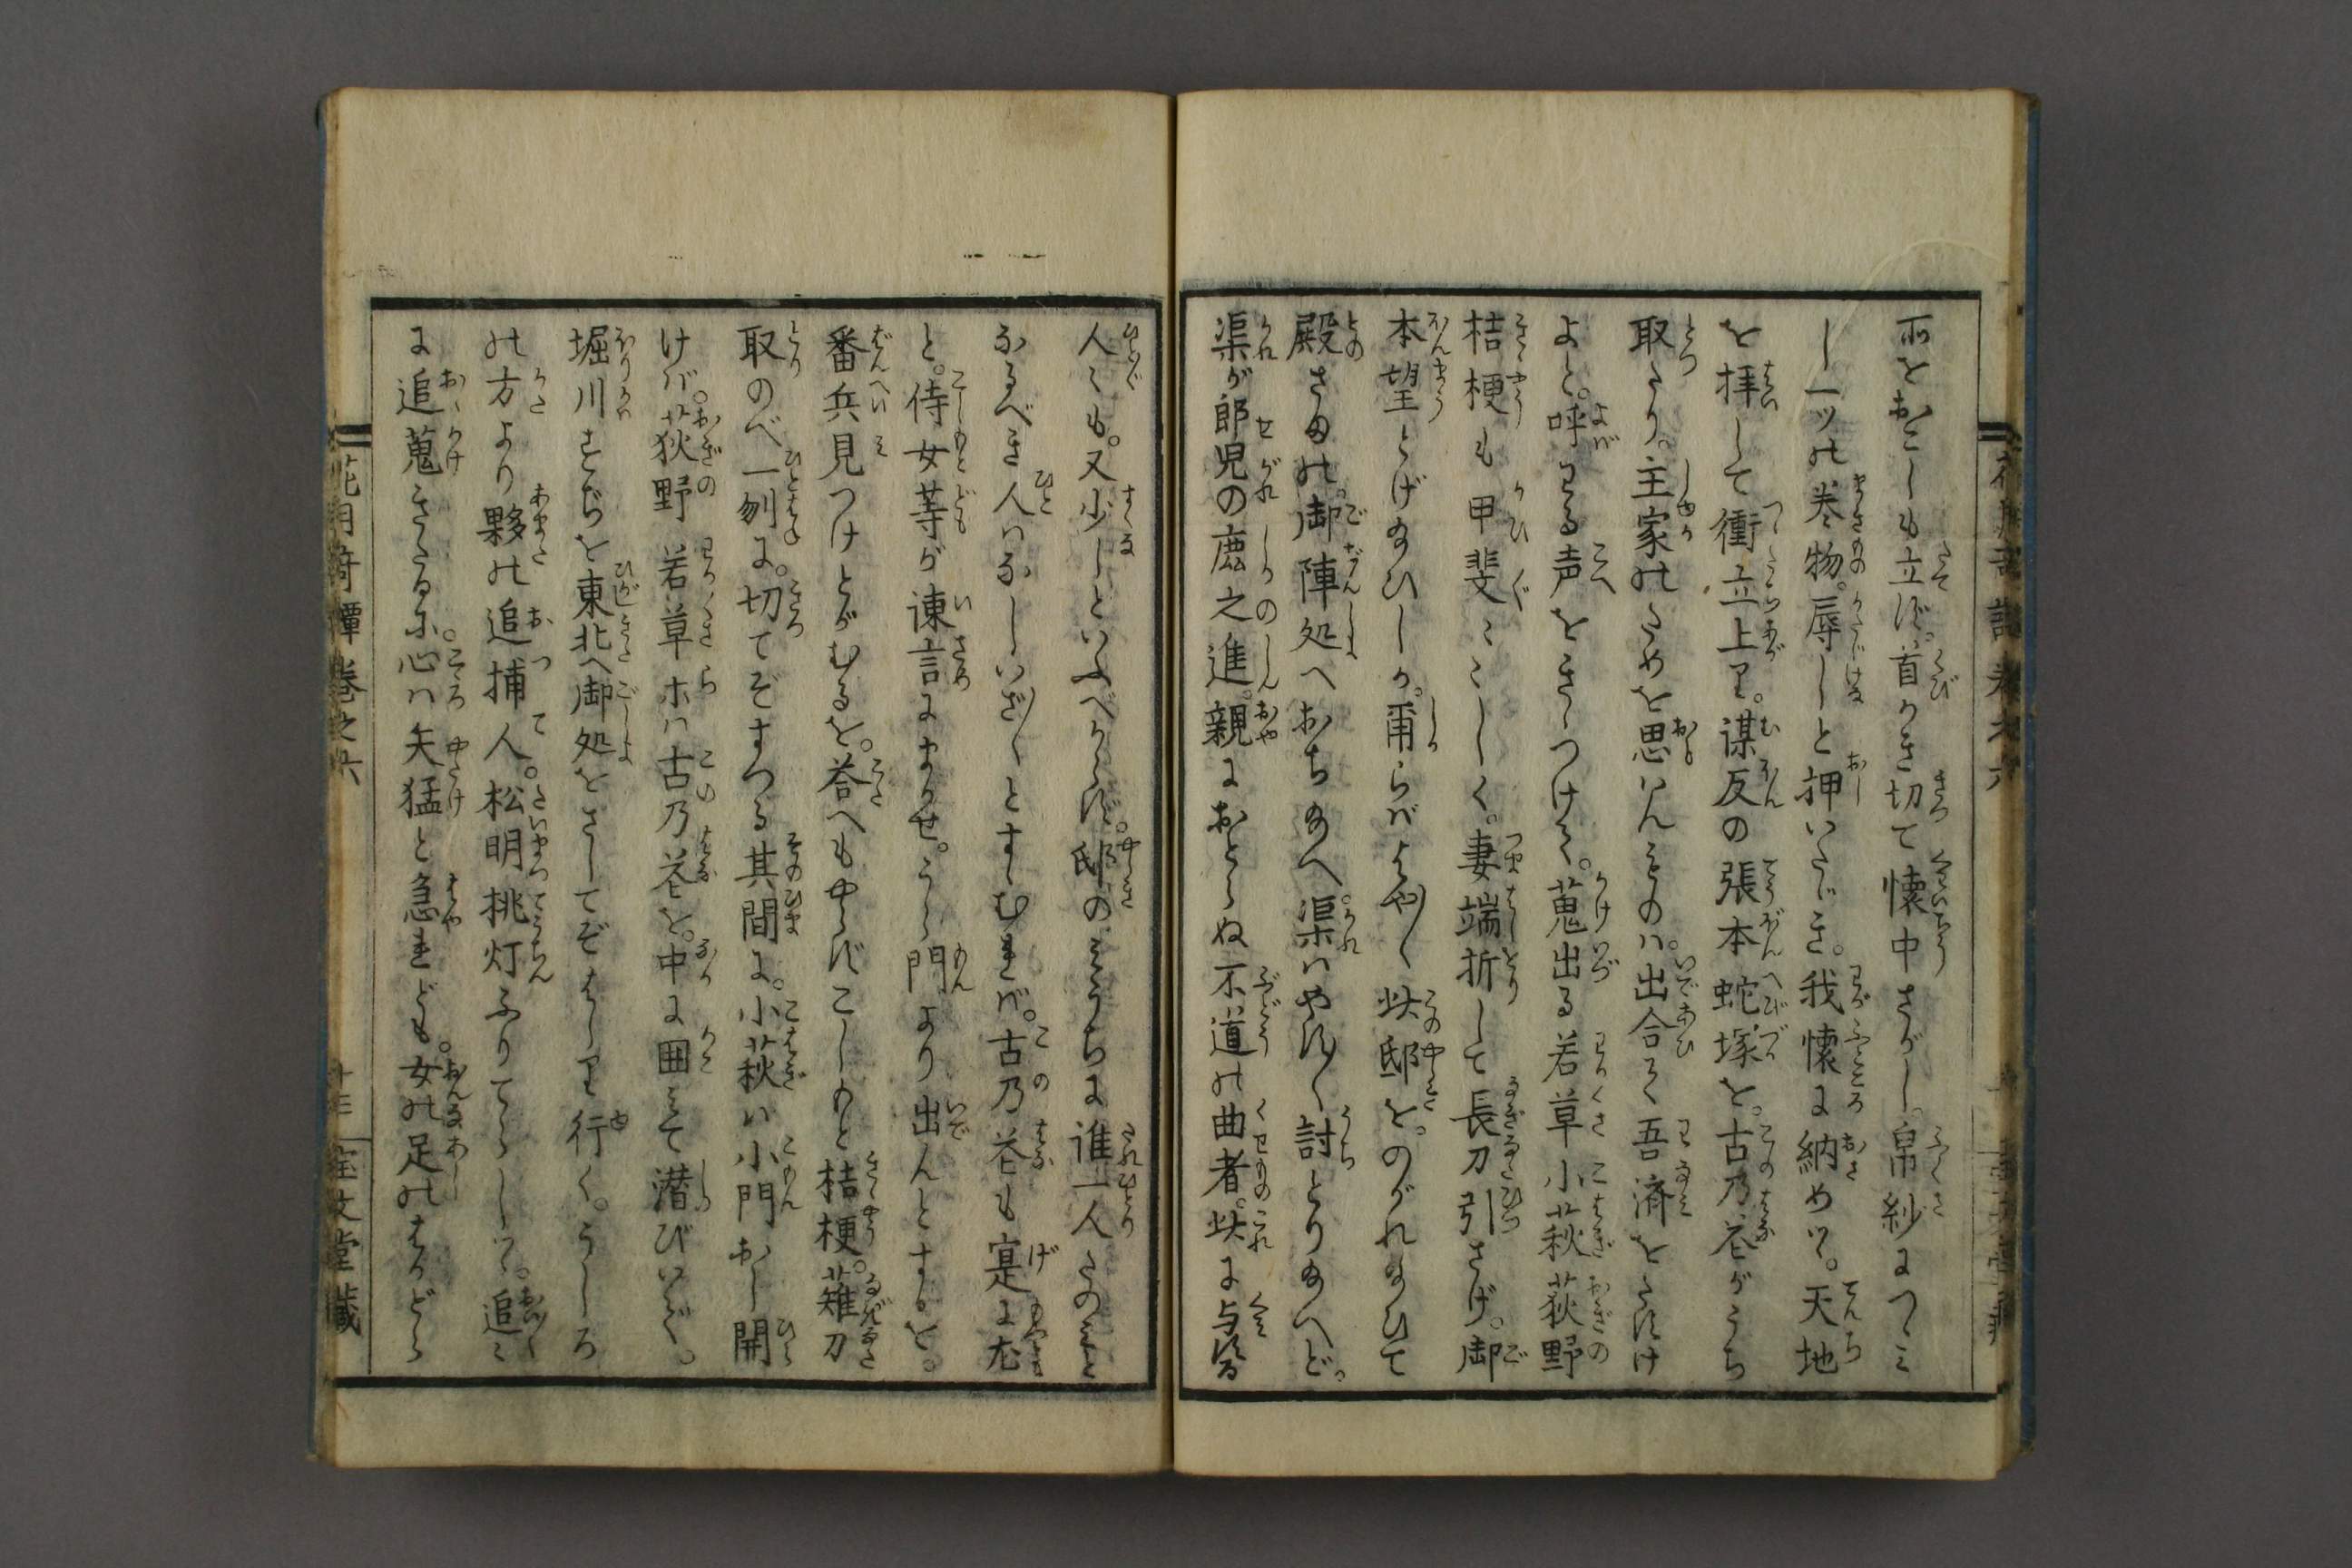 而をおこしも立ず。首かき切て懐中さがし。帛紗につゝみ
し一ツの巻物。辱しと押いたゞき。我懐に納めツヽ。天地
を拝して衝立上り。謀反の張本蛇塚を。古乃花がうち
取たり。主家のためを思はんものハ。出合て吾済をたすけ
よと。呼はる声をきゝつけて。蒐出る若草小萩荻野
桔梗も甲斐〻こしく。妻端折して長刀引さげ。御
本望とげ給ひしか。爾らばはや〳〵此邸を。のがれ給ひて
殿さまの。御陣処へおち給へ。渠ハやす〳〵討とり給へど。
渠が郎児の鹿之進。親におとらぬ不道の曲者。此に与する
人〻も。又少しといふべからず。邸のそうちに誰一人たのみと
なるべき人ハなしいざ〳〵とすゝむれば。古乃花も寔に尤
と。侍女等が諫言にまかせ。うら門より出んとするを。
番兵見つけとがむるを。荅へもやらずこしもと桔梗。薙刀
取のべ一刎に。切てぞすつる其間に。小萩ハ小門おし開
けば。荻野若草ホハ古乃花を。中に囲みて潜びいで。
堀川すぢを東北へ御処をさしてぞはしり行く。うしろ
の方より夥の追捕人。松明挑灯ふりてらしツヽ。追〻
に追蒐きたるに。心ハ矢猛と急れども。女の足のはかどら
花月奇譚巻之六
宝文堂蔵